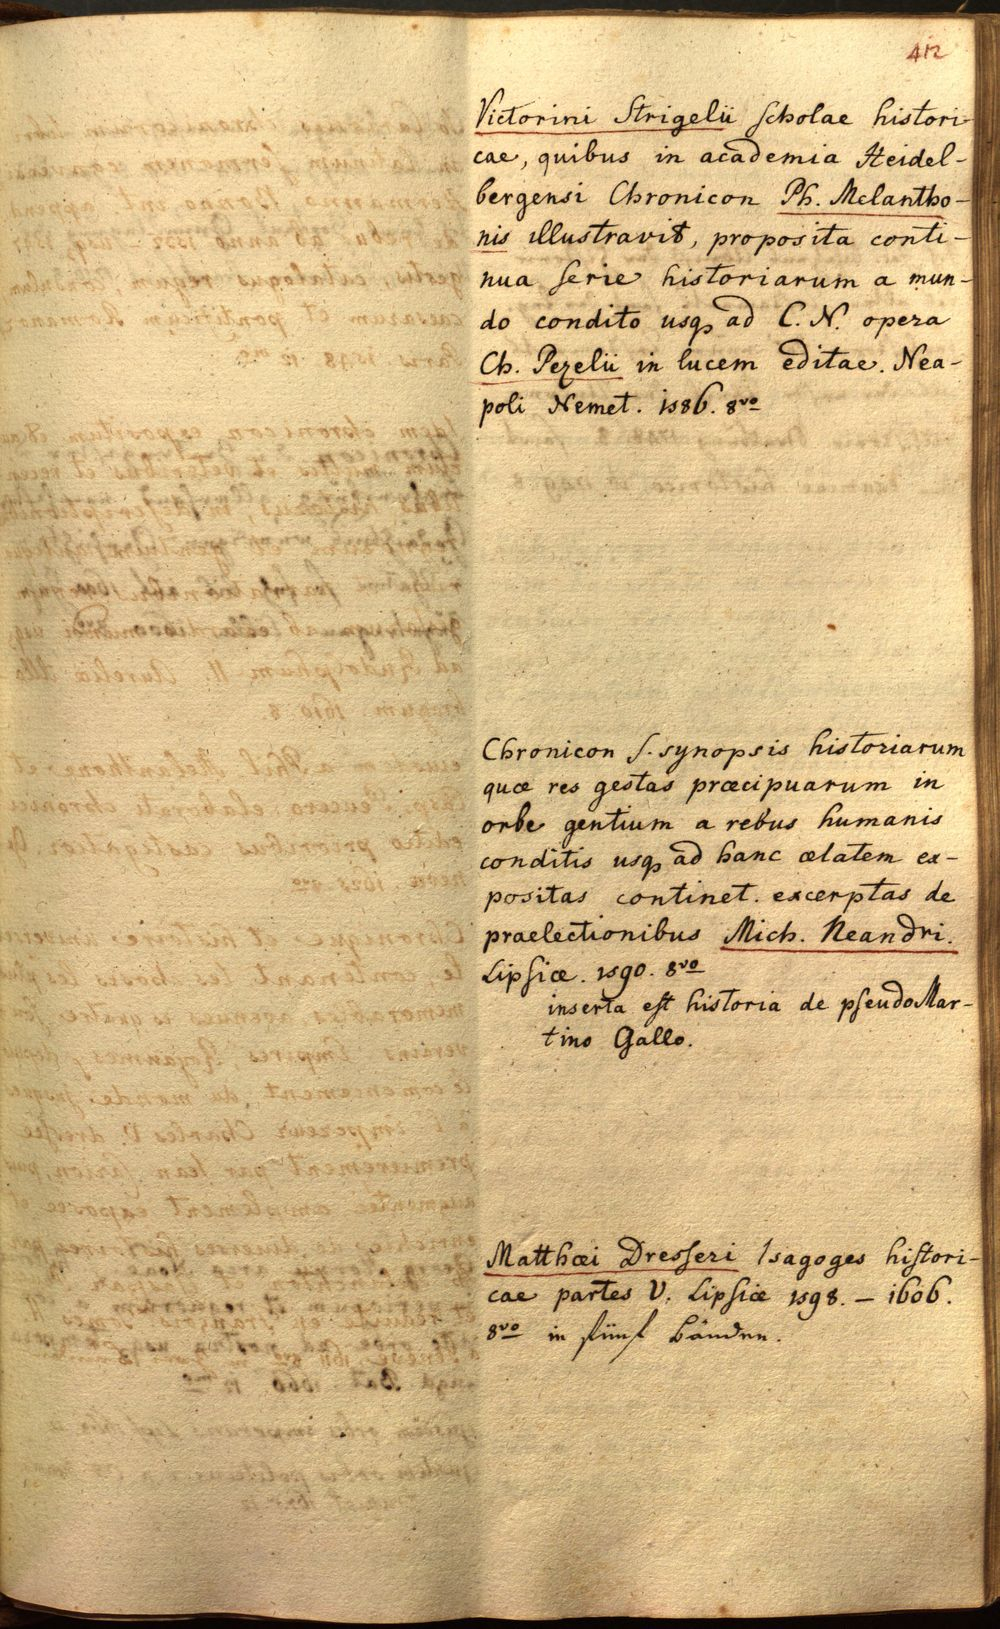 412
Victorini Strigelii scholae histori-
cae, quibus in academia Heidel-
bergensi Chronicon Ph. Melantho-
nis illustravit, proposita conti-
nua serie historiarum a mun-
do condito usq ad C. N. opera
Ch. Pezelii in lucem editae. Nea-
poli Nemet. 1586. 8vo
Chronicon s. synopsis historiarum
quæ res gestas præcipuarum in
orbe gentium a rebus humanis
conditis usq ad hanc ætatem ex-
positas continet. excerptas de
praelectionibus Mich. Neandri.
Lipsiæ. 1590. 8vo
inserta est historia de pseudoMar-
tino Gallo.
Matthæi Dresseri Isagoges histori-
cae partes V. Lipsiæ 1598. – 1606.
8vo in fünf Bänden.